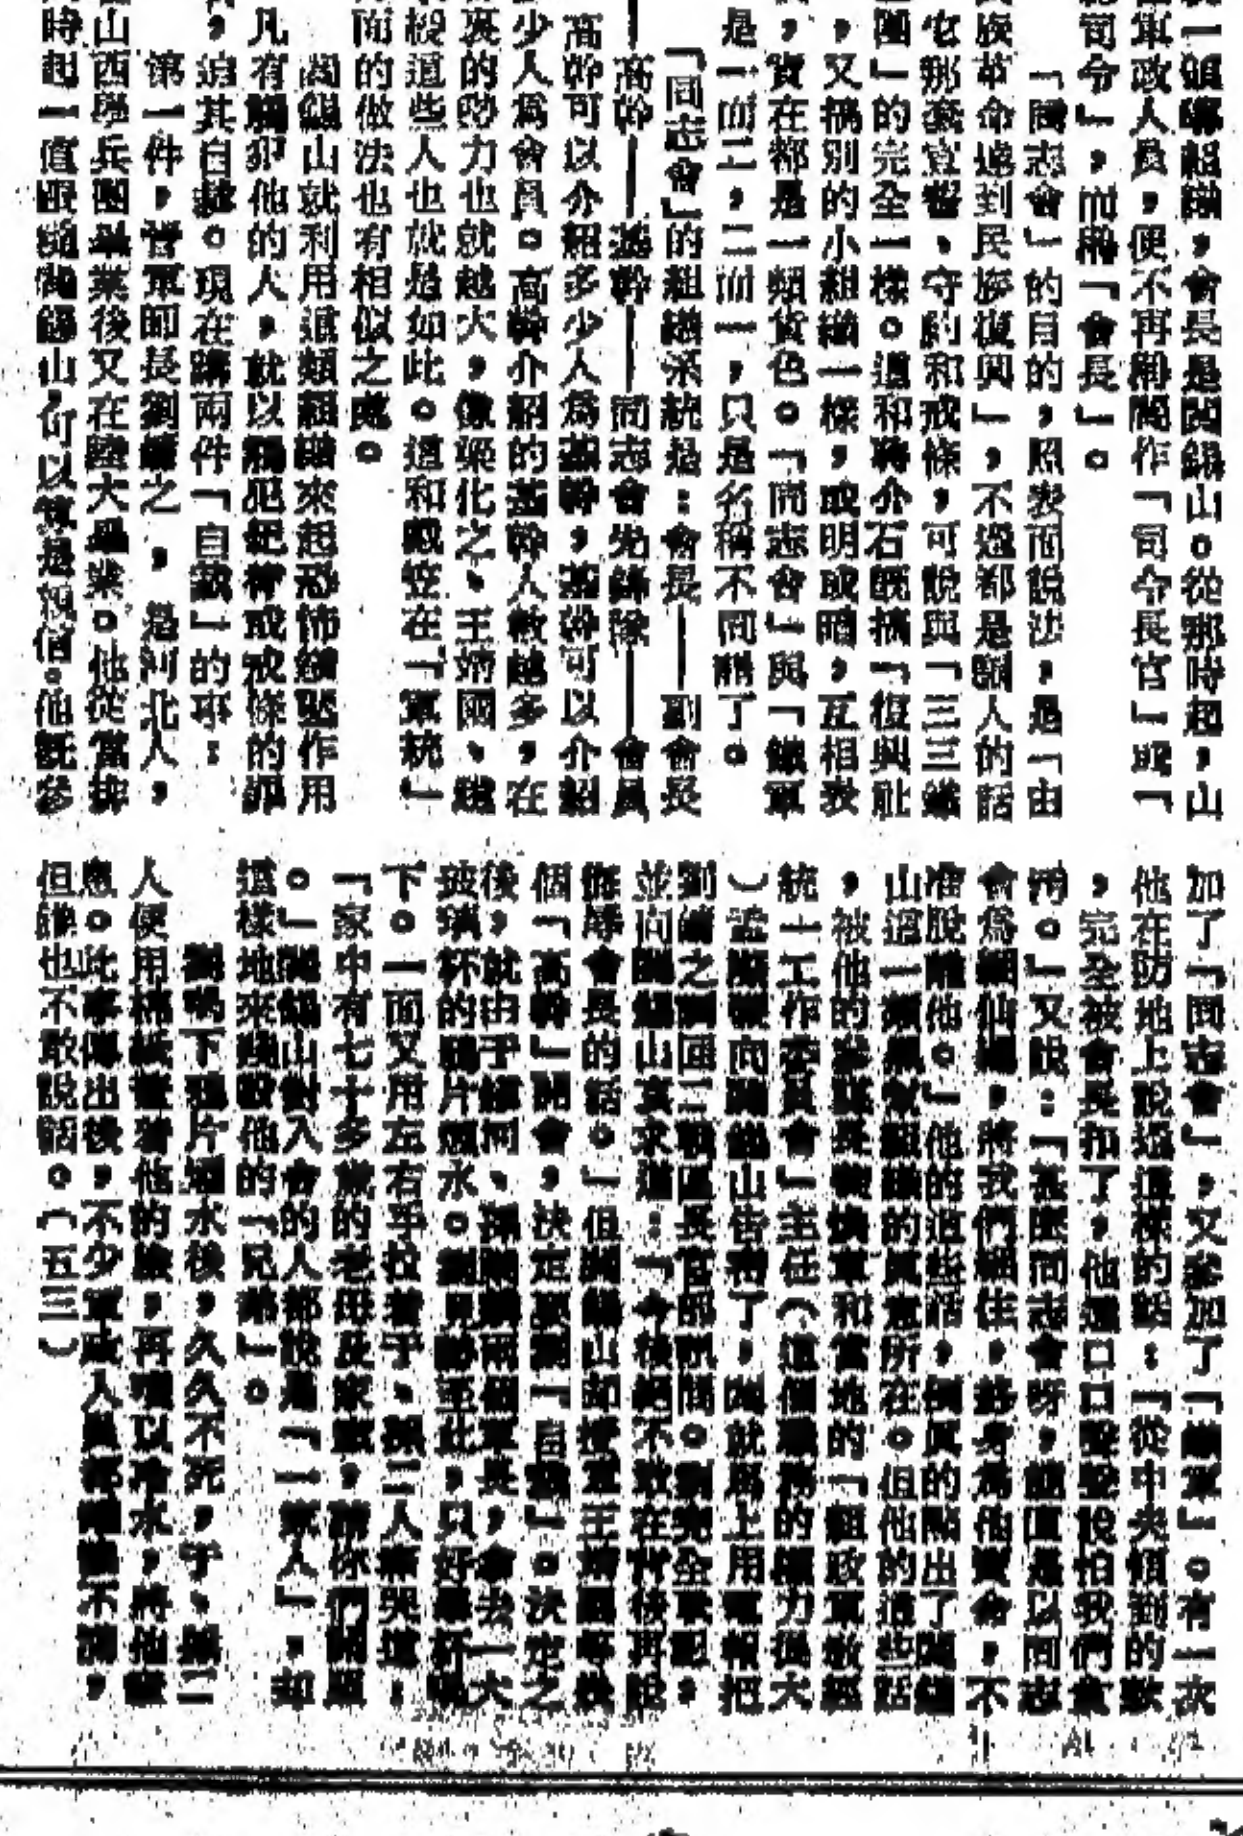 一類的組織，會長是閻錫山。從那時起，山
軍政人員，便不再稱閻作「司令長官」或「
總司令」，而稱「會長」。
「同志會」的目的，照表面說法，是「由
民族革命達到民族復興」，不過都是騙人的話
它那套宣誓、守約和戒條，可說與「三三鐵
團」的完全一樣。這和蔣介石既搞「復興社
，又搞別的小組織一樣，或明或暗，互相表
，實在都是一類貨色。「同志會」與「鐵軍
是一而二，二而一，只是名稱不同罷了。
「同志會」的組織系統是：會長——副會長
——高幹——基幹——同志會先鋒隊——會員
高幹可以介紹多少人爲基幹，基幹可以介紹
少人爲會員。高幹介紹的基幹人數越多，在
裏的勢力也就越大，像梁化之、王靖國、趙
般這些人也就是如此。這和戴笠在「軍統」
面的做法也有相似之處。
閻錫山就利用這類組織來起恐怖鎮壓作用
凡有觸犯他的人，就以觸犯紀律或戒條的罪
，迫其自裁。現在講兩件「自裁」的事：
第一件，暫軍師長劉之，是河北人，
山西學兵團畢業後又在陸大畢業。他從當排
時起一直跟隨閻錫山，可以算是親信。他既參
加了「同志會」，又參加了「鐵軍」。有一次
他在防地上說過這樣的話：「從中央領到的款
，完全被會長扣了，他還口口聲聲說怕我們貪
污。」又說：「甚麼同志會呀，簡直是以同志
會爲綑仙繩，將我們綑住，終身爲他賣命，不
准脫離他。」他的這些話，倒真的點出了閻錫
山這一類組織的真意所在。但他的這些話
，被他的參謀長和當地的「組政軍敎經
統一工作委員會」主任（這個職務的權力很大
）向閻錫山告密了，閻就馬上用電報把
劉之調回二戰區長官部訊問。劉完全承認，
並向閻錫山哀求道：「今後絕不敢在背後再說
侮辱會長的話。」但閻錫山却王靖國等幾
個「高幹」開會，決定要劉「自裁」。決定之
後，就由于鎮河、孫兩個軍長，拿去一大
玻璃杯的鴉片煙水。劉見勢至此，只好舉杯喝
下。一面又用左右手拉着于、孫二人痛哭道：
「家中有七十多歲的老母及家眷，請你們照顧
。」閻錫山對入會的人都說是「一家人」，却
這樣地來殘殺他的「兄弟」。
劉喝下鴉片煙水後，久久不死，于、孫二
人便用棉紙蓋着他的臉，再噴以冷水，將他窒
息。此事傳出後，不少軍政人員都憤憤不平，
但誰也不敢說話。（五三）